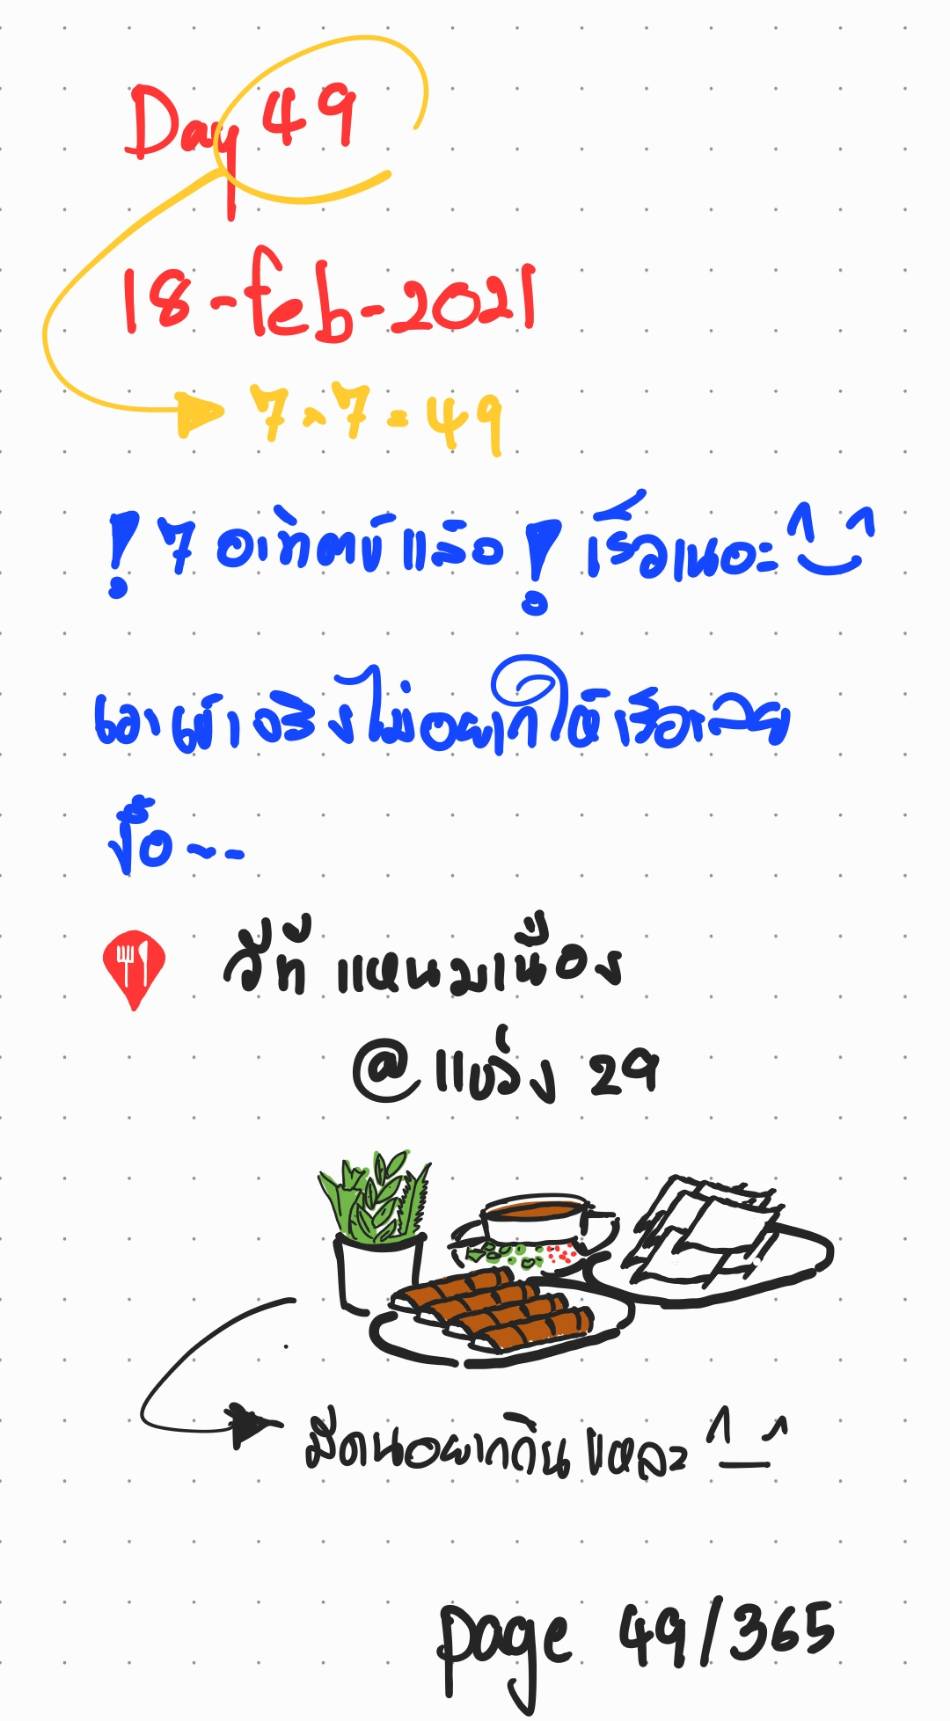 Day 49
18-feb-2021
7×7=49
! 7 อาทิตย์แล้ว ! เร็วเนอะ ^‿^
เอาเข้าจริงไม่อยากให้เร็วเลย
งื้อ~-
วีที แหนมเนือง
@ แบริ่ง 29
มีคนอยากกิน แหละ ^_^
page 49/365